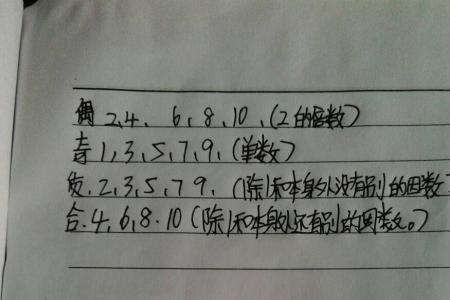 偶 2、4、 6、8、10、(2的倍数)
奇 1、3、5、7、9、(单数)
质、2、3、5、7 9、(除1和本身外没有别的因数)
合、4、6、8、10(除1和本身外还有别的因数。)